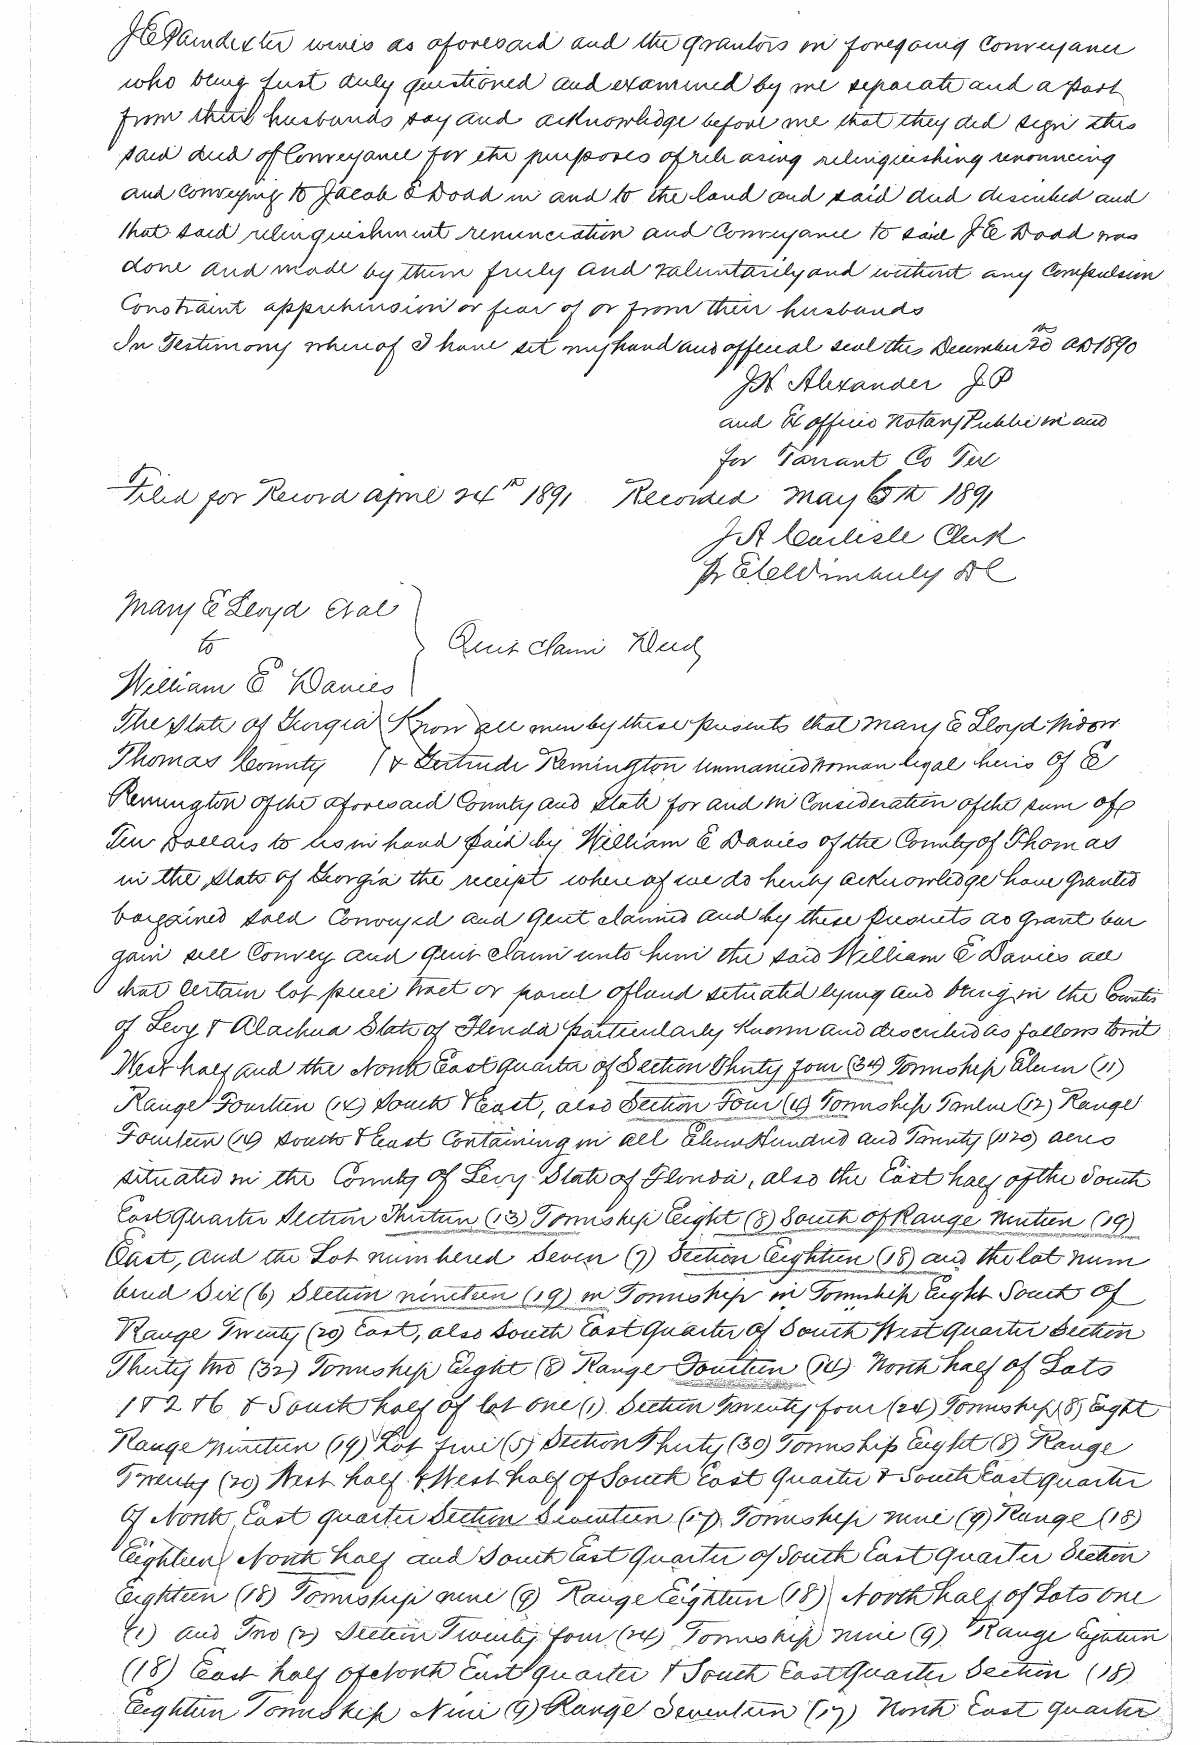 J E Paindexter wives as aforesaid and the grantors in foregoing Conveyance
who being first duly questioned and examined by me separate and a part
from their husbands say and acknowledge before me that they did sign this
said deed of Conveyance for the purposes of releasing relinquishing renouncing
and conveying to Jacob E Dodd in and to the land and said deed described and
that said relinquishment renunciation and Conveyance to said J E Dodd was
done and made by them freely and voluntarily and without any Compulsion
Constraint apprehension or fear of or from their husbands
In Testimony whereof I have set my hand and official seal this December 20th AD 1890
J H Alexander J P
and Ex officio Notary Public in and
for Tarrant Co Tex
Filed for Record April 24th 1891 Recorded May 6th 1891
J A Carlisle Clerk
Pr E C Wimberly DC
Mary E Lloyd et al
to
Quit Claim Deed
William E Davies
The State of Georgia Know all men by these presents that Mary E Lloyd Widow
Thomas County & Gertrude Remington unmarried woman legal heirs of E
Remington of the aforesaid County and State for and in Consideration of the sum of
Ten Dollars to us in hand paid by William E Davies of the County of Thomas
in the State of Georgia the receipt where of we do hereby acknowledge have granted
bargained sold Conveyed and quit claimed and by these Presents do grant bar
gain sell Convey and quit claim unto him the said William E Davies all
that certain lot piece tract or parcel of land situated lying and being in the Counties
of Levy & Alachua State of Florida particularly Known and described as follows towit
West half and the North East quarter of Section Thirty four (34) Township Eleven (11)
Range Fourteen (14) South & East, also Section Four (4) Township Twelve (12) Range
Fourteen (14) South & East Containing in all Eleven Hundred and Twenty (1120) acres
situated in the County of Levy State of Florida, also the East half of the South
East Quarter Section Thirteen (13) Township Eight (8) South of Range nineteen (19)
East, and the Lot numbered Seven (7) Section Eighteen (18) and the lot num
bered Six (6) Section nineteen (19) in Township in Township Eight South of
Range Twenty (20) East, also South East Quarter of South West Quarter Section
Thirty two (32) Township Eight (8) Range Fourteen (14) North half of Lots
1 & 2 & 6 & South half of lot one (1) Section Twenty four (24) Township (8) Eight
Range Nineteen (19) Lot five (5) Section Thirty (30) Township Eight (8) Range
Twenty (20) West half & West half of South East Quarter & South East quarter
Of North East quarter Section Seventeen (17) Township nine (9) Range (18)
Eighteen North half and South East Quarter of South East Quarter Section
Eighteen (18) Township nine (9) Range Eighteen (18) North half of Lots one
(1) and Two (2) Section Twenty four (24) Township nine (9) Range Eighteen
(18) East half of North East quarter & South East Quarter Section (18)
Eighteen Township Nine (9) Range Seventeen (17) North East quarter